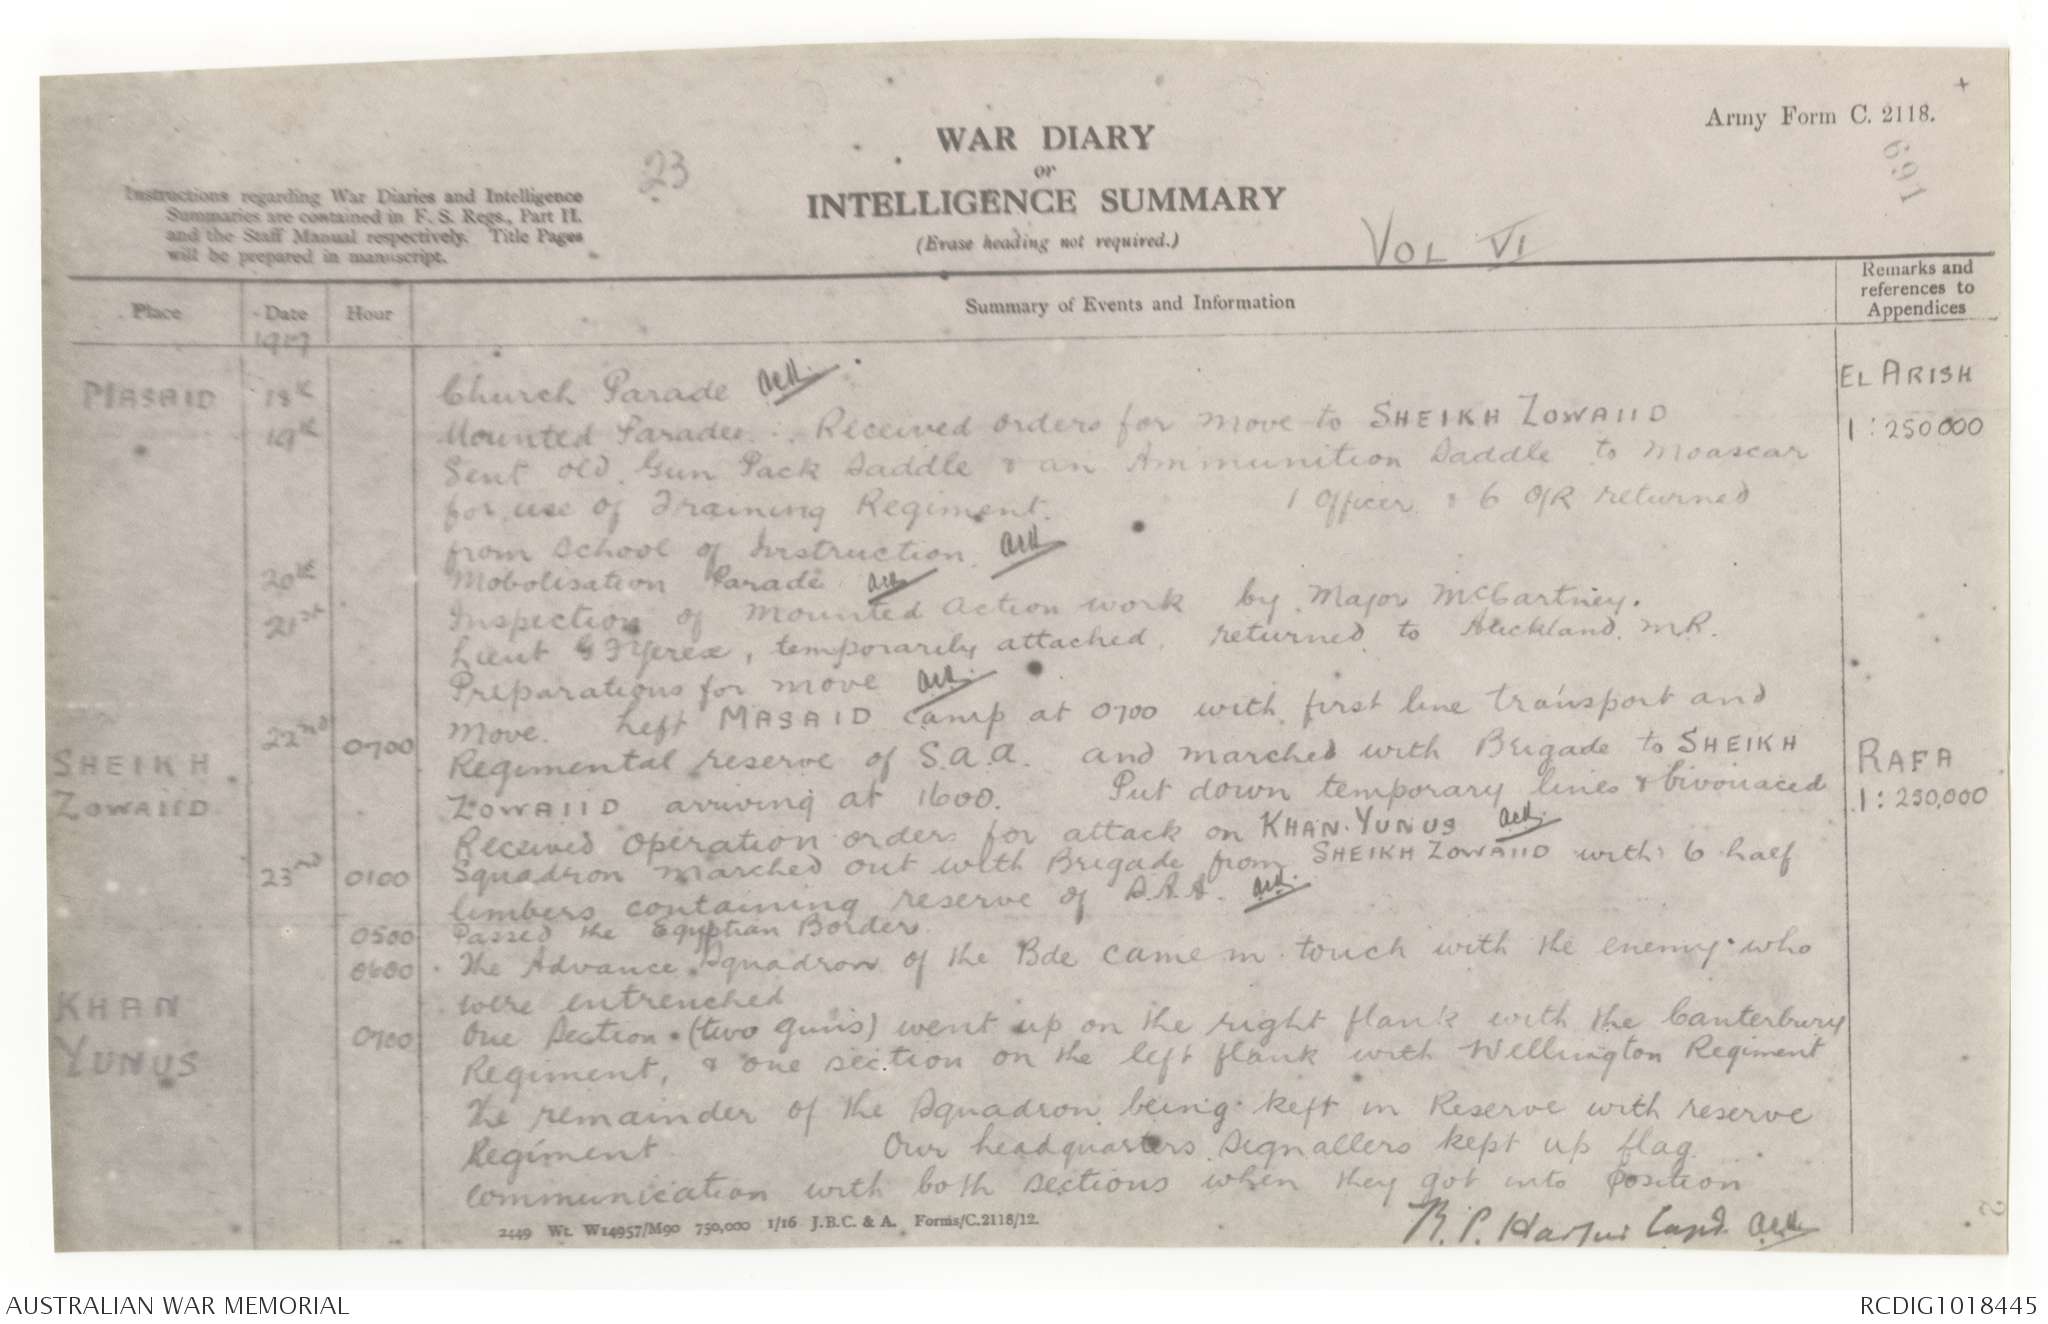 Army Form C. 2118.
WAR DIARY
or
INTELLIGENCE SUMMARY
(Erase heading not required.)
23
691
Instructions regarding War Diaries and Intelligence
Summaries are contained in F. S. Regs., Part II.
and the Staff Manual respectively. Title Pages
will be prepared in manuscript.
VOL VI
Place
Date
Hour
Summary of Events and Information
Remarks and
references to
Appendices
1917
MASAID 18th Church Parade EL ARISH
19th Mounted Parades. Received orders for move to SHEIKH ZOWAIID 1:250000
Sent old Gun Pack Saddle & an Ammunition Saddle to Moascar
for use of Training Regiment. 1 Officer & 6 O/R returned
from School of Instruction.
20th Mobolisation Parade
21st Inspection of mounted action work by Major McCartney.
Lieut G F Yerex, temporarily attached, returned to Auckland M.R.
Preparations for move
22nd 0700 Move. Left MASAID camp at 0700 with first line transport and
SHEIKH Regimental reserve of S.A.A. and marched with Brigade to SHEIKH RAFA
ZOWAIID ZOWAIID arriving at 1600. Put down temporary lines & bivouaced 1:250,000
Received operation orders for attack on KHAN YUNUS
23rd 0100 Squadron marched out with Brigade from SHEIKH ZOWAIID with 6 half
limbers containing reserve of S.A.A.
0500 Passed the Egyptian Border.
0600 The Advance Squadron of the Bde came in touch with the enemy who
KHAN were entrenched
YUNUS 0700 One Section (two guns) went up on the right flank with the Canterbury
Regiment, & one section on the left flank with Wellington Regiment
The remainder of the Squadron being kept in Reserve with reserve
Regiment. Our headquarters signallers kept up flag
communication with both sections when they got into position
R. P. Harper Capt.
2449 Wt. W14957/M90 750,000 1/16 J.B.C. & A. Forms/C.2118/12.
AUSTRALIAN WAR MEMORIAL
RCDIG1018445